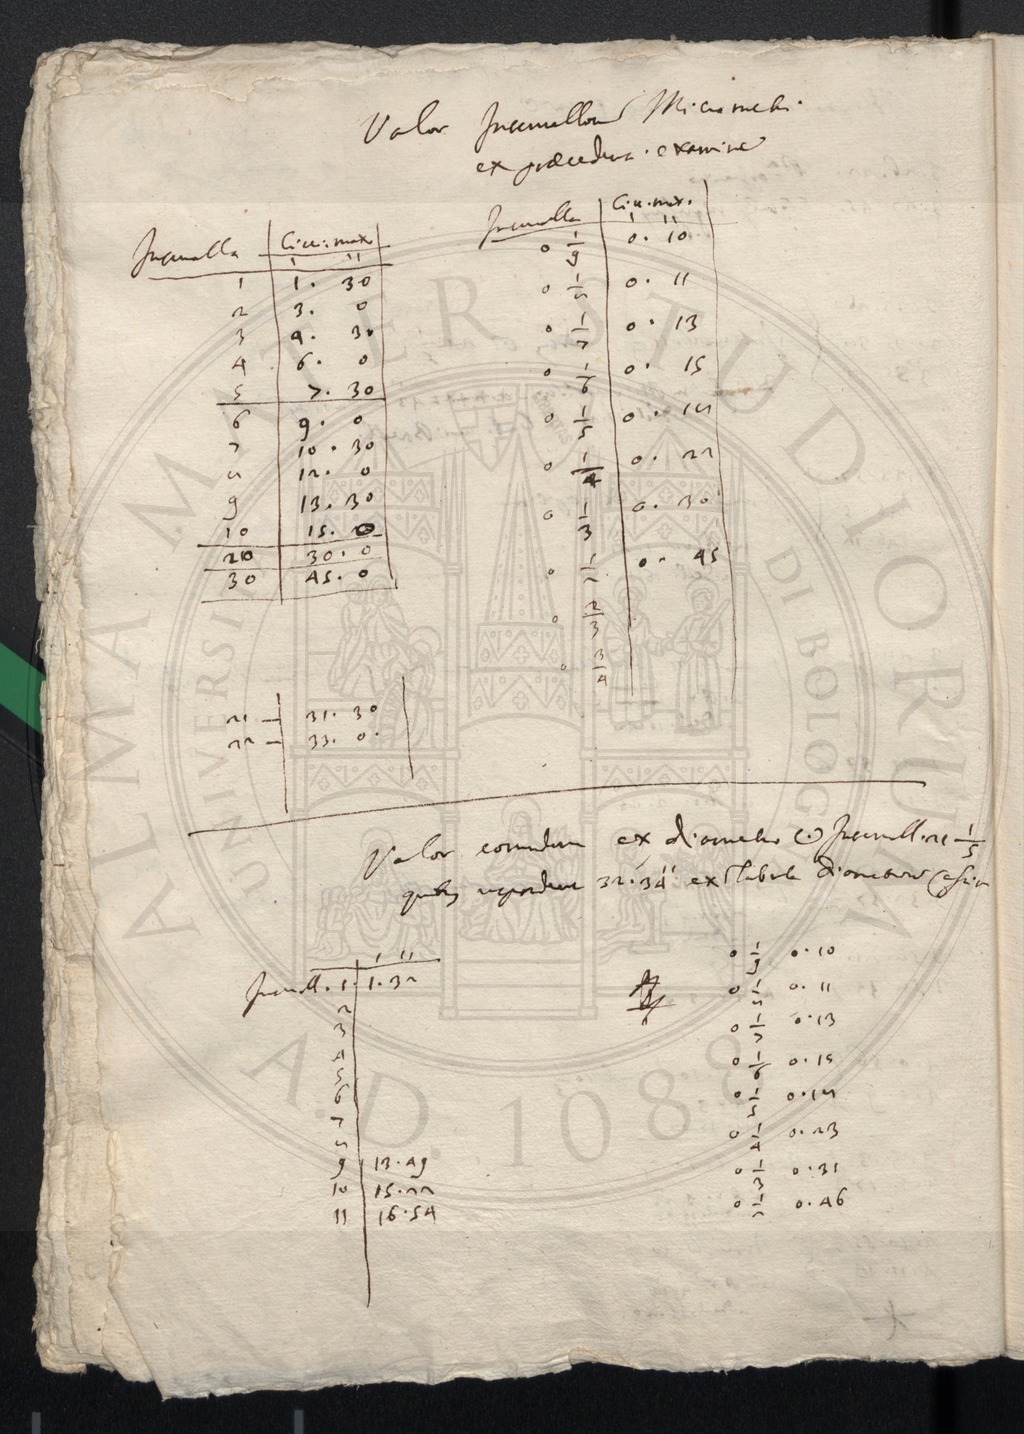 Valor Intervallorum Micrometri
ex præcedenti examine
Intervalla Circ: max.
' ''
1 1. 30
2 3. 0
3 4. 30
4 6. 0
5 7. 30
6 9. 0
7 10. 30
8 12. 0
9 13. 30
10 15. 0
20 30. 0
30 45. 0
21 – 31. 30
22 – 33. 0.
Intervalla Circ. max.
' ''
0 1/9 0. 10
0 1/8 0. 11
0 1/7 0. 13
0 1/6 0. 15
0 1/5 0. 18
0 1/4 0. 22
0 1/3 0. 30
0 1/2 0. 45
0 2/3
0 3/4
Valor eorumdem ex diametro ☉ Intervall. 21 1/5
quibus respondent 32' 34'' ex Tabula diametrorum Cassin
' ''
Intervall. 1. 1. 32
2
3
4
5
6
7
8
9 13. 49
10 15. 22
11 16. 54
0 1/9 0. 10
0 1/8 0. 11
0 1/7 0. 13
0 1/6 0. 15
0 1/5 0. 18
0 1/4 0. 23
0 1/3 0. 31
0 1/2 0. 46
ALMA MATER STUDIORUM
UNIVERSITÀ DI BOLOGNA
A.D. 1088